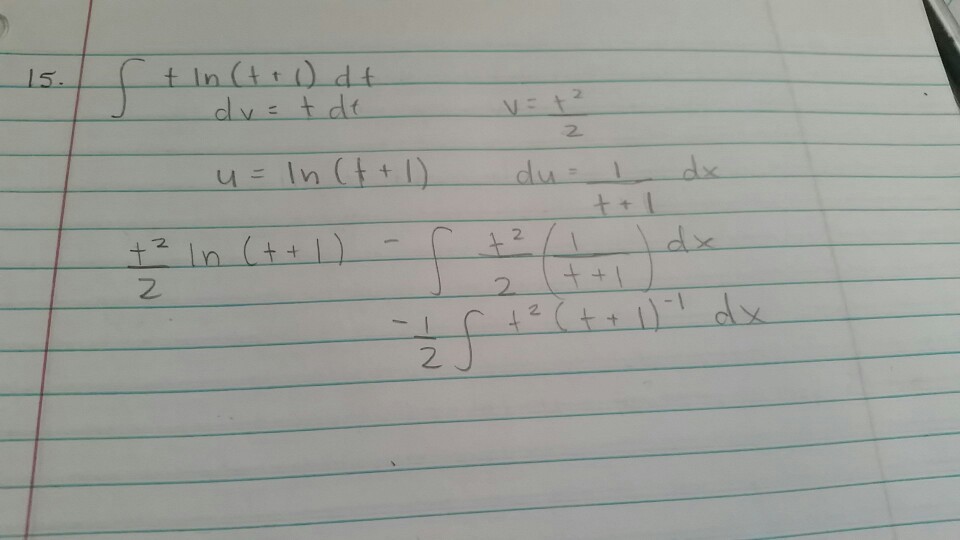 15. ∫ t ln(t+1) dt
dv = t dt v = t²/2
u = ln(t+1) du = 1/(t+1) dx
t²/2 ln(t+1) - ∫ t²/2 (1/(t+1)) dx
-1/2 ∫ t²(t+1)⁻¹ dx